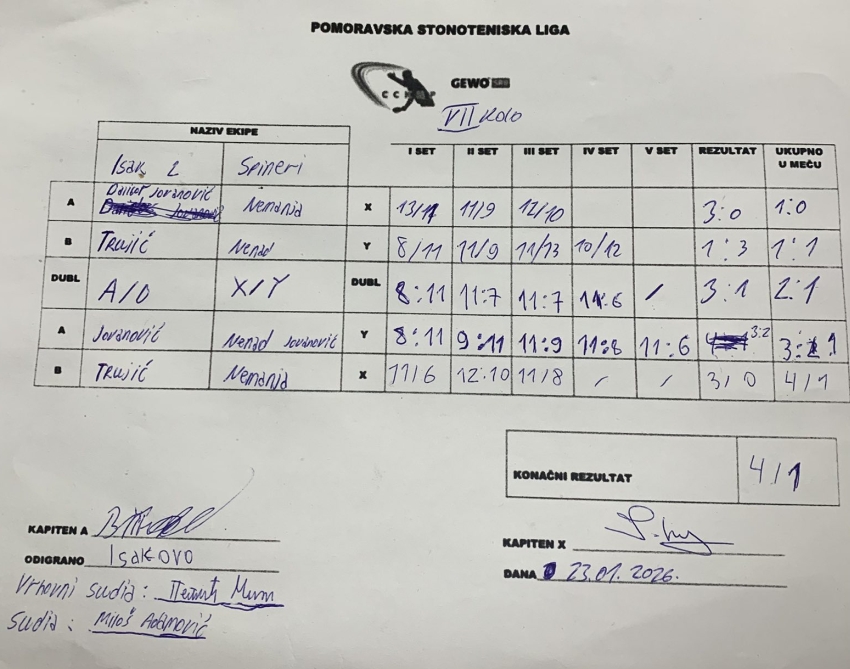 POMORAVSKA STONOTENISKA LIGA
GEWO
VII KOLO
NAZIV EKIPE I SET II SET III SET IV SET V SET REZULTAT UKUPNO U MEČU
Isak 2 Spineri
A Jovanović Nemanja X 13/11 11/9 12/10 3:0 1:0
B Trujić Nenad Y 8/11 11/9 11/13 10/12 1:3 1:1
DUBL X/Y DUBL 8:11 11:7 11:7 11:6 / 3:1 2:1
A Jovanović Nenad Jovanović Y 8:11 9:11 11:9 11:8 11:6 3:2 3:1
B Trujić Nemanja X 11/6 12:10 11/8 / / 3/0 4/1
KONAČNI REZULTAT 4/1
KAPITEN A
KAPITEN X
ODIGRANO Isakovo
DANA 23.01.2026.
Vrhovni sudia:
Sudia: Miloš Adamović